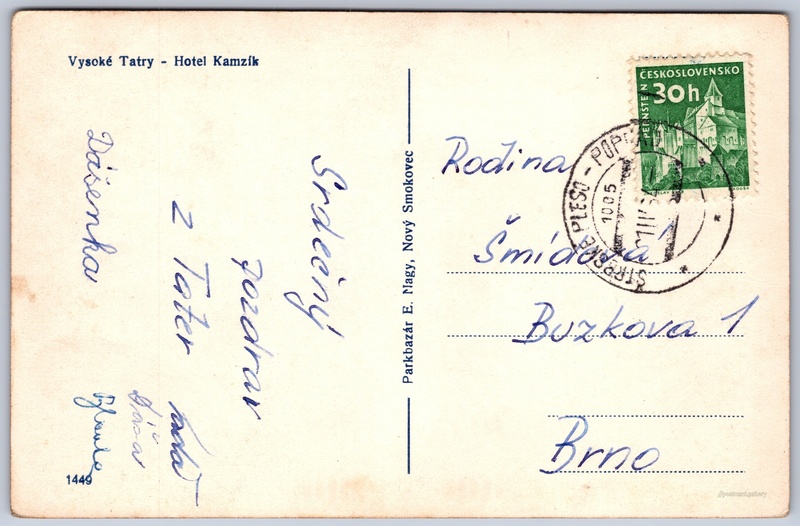 Vysoké Tatry - Hotel Kamzík
Srdečný
pozdrav
z Tater
Dášenka
1449
Parkbazár E. Nagy, Nový Smokovec
ČESKOSLOVENSKO
30h
PERNŠTEJN
ŠTRBSKÉ PLESO - POPRAD
Rodina
Šmídova
Buzkova 1
Brno